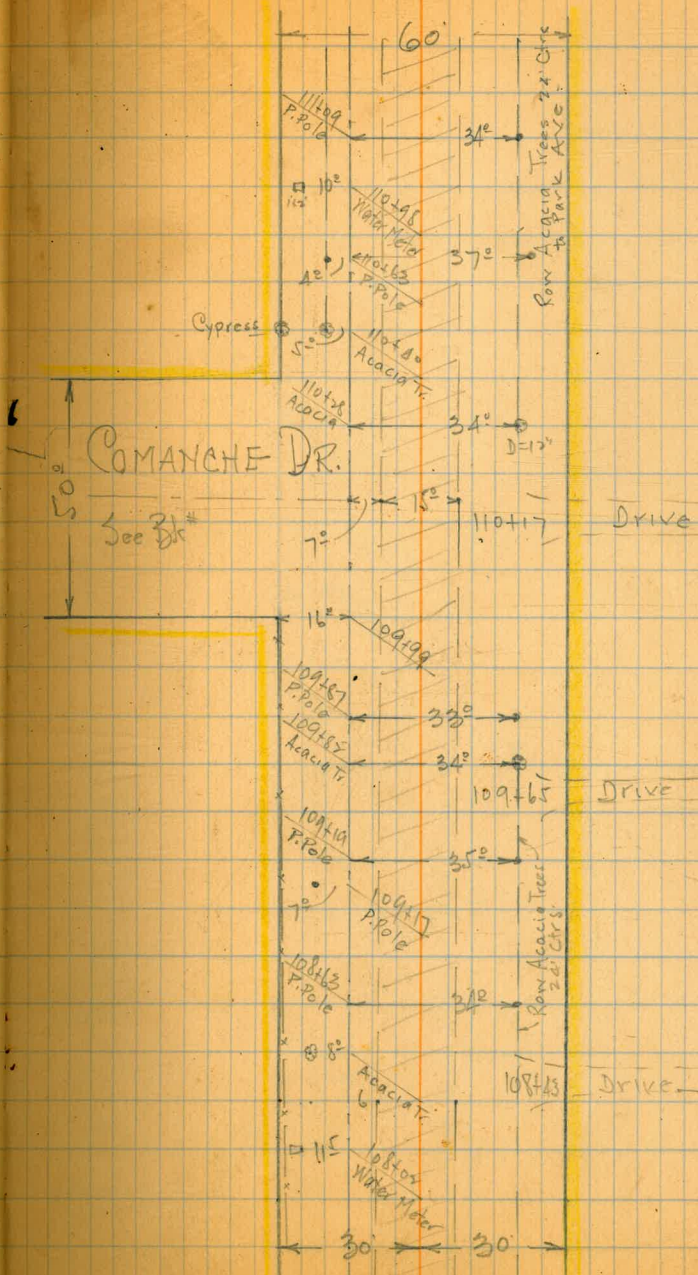 60
111+09
P.Pole
34⁰
Row Acacia Trees 24' Ctrs
to Park Ave.
10²
110+98
Water Meter
37⁰
110+63
P.Pole
4²
Cypress
5⁰
110+40
Acacia Tr.
110+28
Acacia
34⁰
D=12"
COMANCHE DR.
50⁰
See Bk#
15⁰
7⁰
110+17
Drive
16²
109+99
109+87
P.Pole
33⁰
109+85
Acacia Tr.
34⁰
109+65
Drive
109+19
P.Pole
35⁰
7⁰
109+17
P.Pole
Row Acacia Trees
24' Ctrs.
108+63
P.Pole
34⁰
8⁰
Acacia Tr.
6
108+43
Drive
11⁵
108+02
Water Meter
30
30